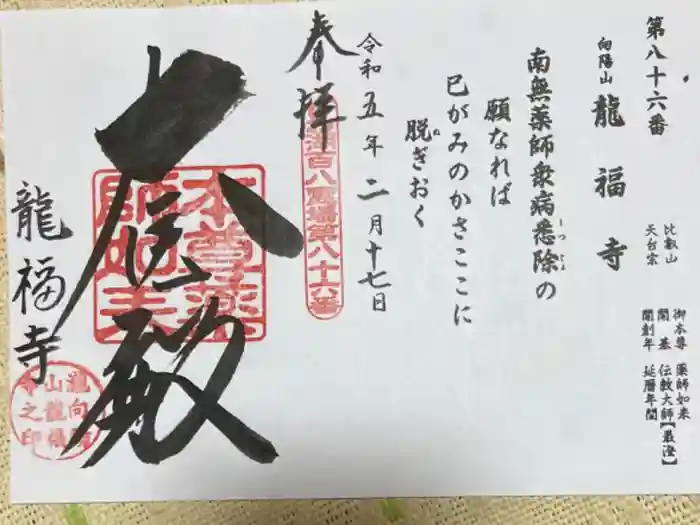 第八十六番
向陽山
龍福寺
比叡山
天台宗
御本尊 薬師如来
開基 伝教大師【最澄】
開創年 延暦年間
南無薬師衆病悉除の
しつじょ
願なれば
己がみのかさここに
脱ぎおく
ぬ
奉拝
令和五年二月十七日
百八霊場第八十六番
本尊薬師如来
殿
龍福寺